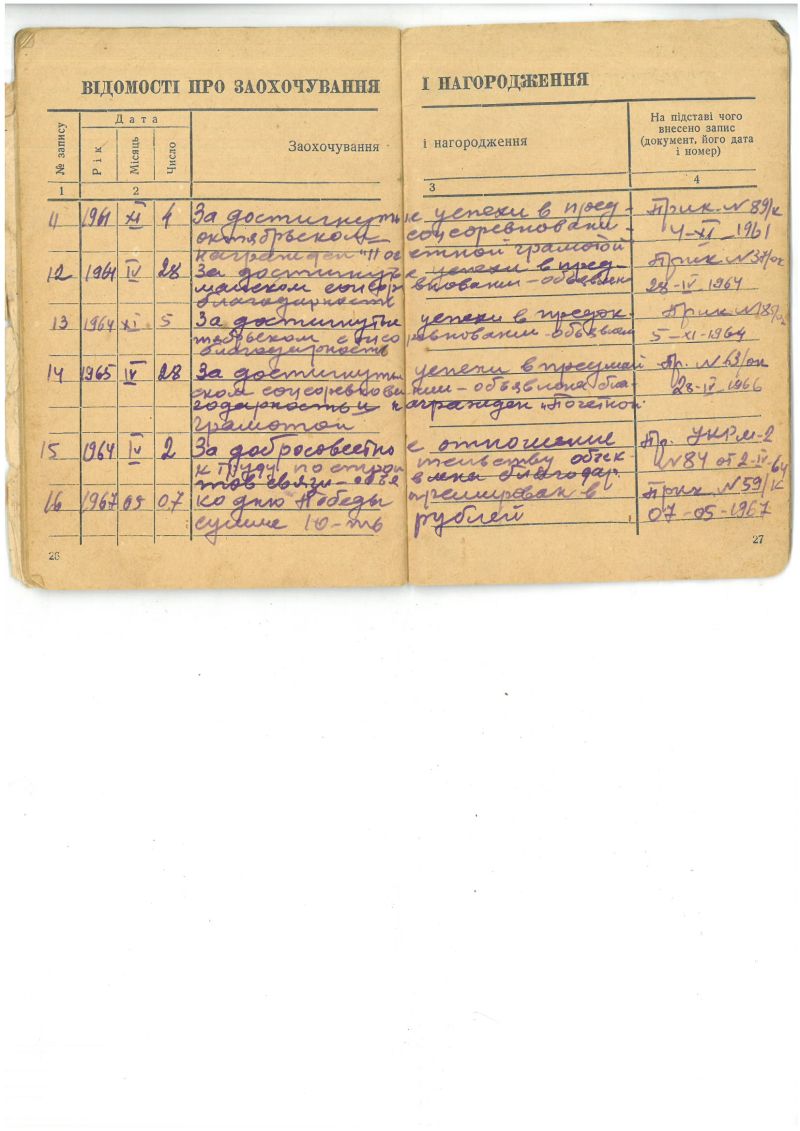 ВІДОМОСТІ ПРО ЗАОХОЧУВАННЯ І НАГОРОДЖЕННЯ
№ запису Дата Заохочування і нагородження На підставі чого внесено запис (документ, його дата і номер)
Рік Місяць Число
1 2 3 4
11 1961 XI 4 За достигнутые успехи в пред- Прик. N 89/к
октябрьском соцсоревновани- 4-XI-1961
награжден "Почетной грамотой
12 1964 IV 28 За достигнутые успехи в пред- Прик N 37/ок
майском соцсор евновании - объявлена 28-IV-1964
благодарность
13 1964 XI 5 За достигнутые успехи в предок- Прик N
тябрьском с оцсо ревновании - объявлен 5-XI-1964
благодарность
14 1965 IV 28 За достигнутые успехи в предмай Пр. N 63/ок
ском соцсоревновании - объявлена бла- 28-IV-1966
годарность и награжден "Почетной
грамотой
15 1964 IV 2 За добросовестное отношение Пр. УНРМ-2
к труду по строительству объек N 84 от 2-IV-64
тов связи - объявлена благодар.
16 1967 05 07 ко дню Победы премирован в Прик. N 59/к
сумме 10-ть рублей 07-05-1967
26 27